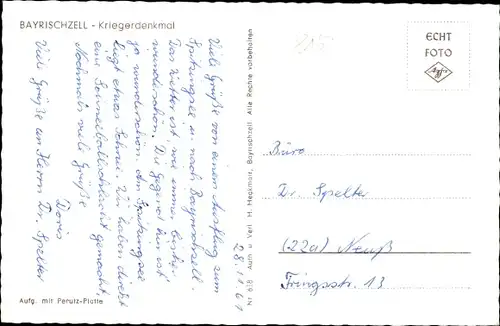 BAYRISCHZELL - Kriegerdenkmal
Viele Grüße von einem Ausflug zum
Spitzingsee u. nach Bayrischzell.
Das Wetter ist, wie immer,
wunderschön. Die Gegend hier ist
ja wunderschön. Am Spitzingsee
liegt etwas Schnee. Wir haben direkt
eine Schneeballschlacht gemacht.
Nochmals viele Grüße
Doris
Viele Grüße an Herrn Dr. Spelter
28.11.61
Aufg. mit Perutz-Platte
Nr. 618 Auth. Verl. H. Heckmair, Bayrischzell. Alle Rechte vorbehalten
ECHT
FOTO
Agfa
Büro
Dr. Spelter
(22a) Neuß
Fringsstr. 13